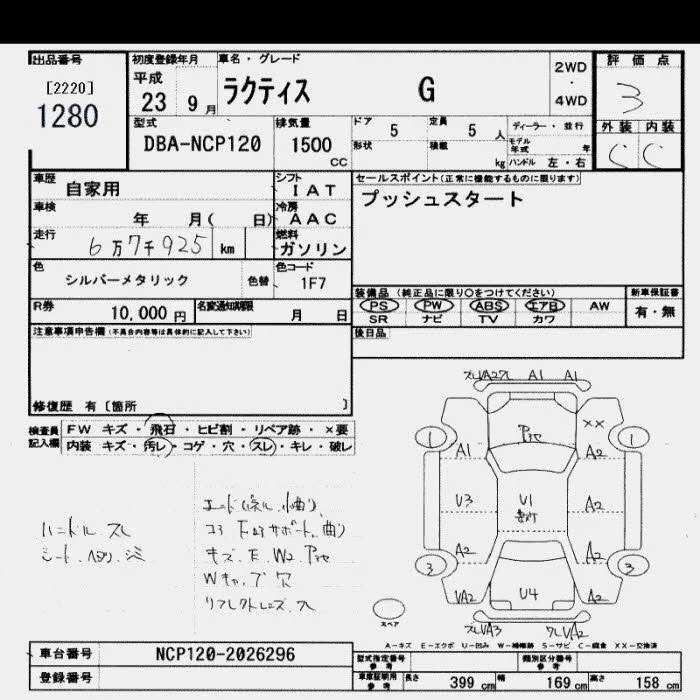 出品番号
[2220]
1280
初度登録年月
平成
23年 9月
車名・グレード
ラクティス G
2WD
・
4WD
評価点
3
外装 内装
C C
型式
DBA-NCP120
排気量
1500
CC
ドア 5
定員 5 人
形状
積載 kg
ディーラー・並行
モデル年式 年
ハンドル 左・右
車歴
自家用
シフト
IAT
車検
年 月( 日)
冷房
AAC
走行
6万7千925 km
燃料
ガソリン
色
シルバーメタリック
色替
色コード
1F7
R券
10,000 円
名変通知期限
月 日
セールスポイント(正常に機能するものに限ります)
プッシュスタート
装備品 (純正品に限り○をつけてください)
PS PW ABS エアB AW
SR ナビ TV カワ
新車保証書
有・無
後日品
注意事項申告欄(不具合内容等は具体的に記入して下さい)
修復歴 有〔箇所 〕
検査員記入欄
FW キズ・飛石・ヒビ割・リペア跡・×要
内装 キズ・汚レ・コゲ・穴・スレ・キレ・破レ
ハンドル.スレ
シート.ヘタリ.シミ
キズ.E.W2
Wキャップ穴
リフレクトレンズ.ス
A1 A1
1 1
A1
××
A2
U3
U1
A2
A2
A2
3 3
VA2
U4
A2
スレVA3
ワレVA2
スペア
A-キズ E-エクボ U-凹み W-補修跡 S-サビ C-腐食 XX-交換済
車台番号
NCP120-2026296
登録番号
型式指定番号
参考
類別区分番号
参考
車庫証明用
参考
長さ 399 cm
幅 169 cm
高さ 158 cm